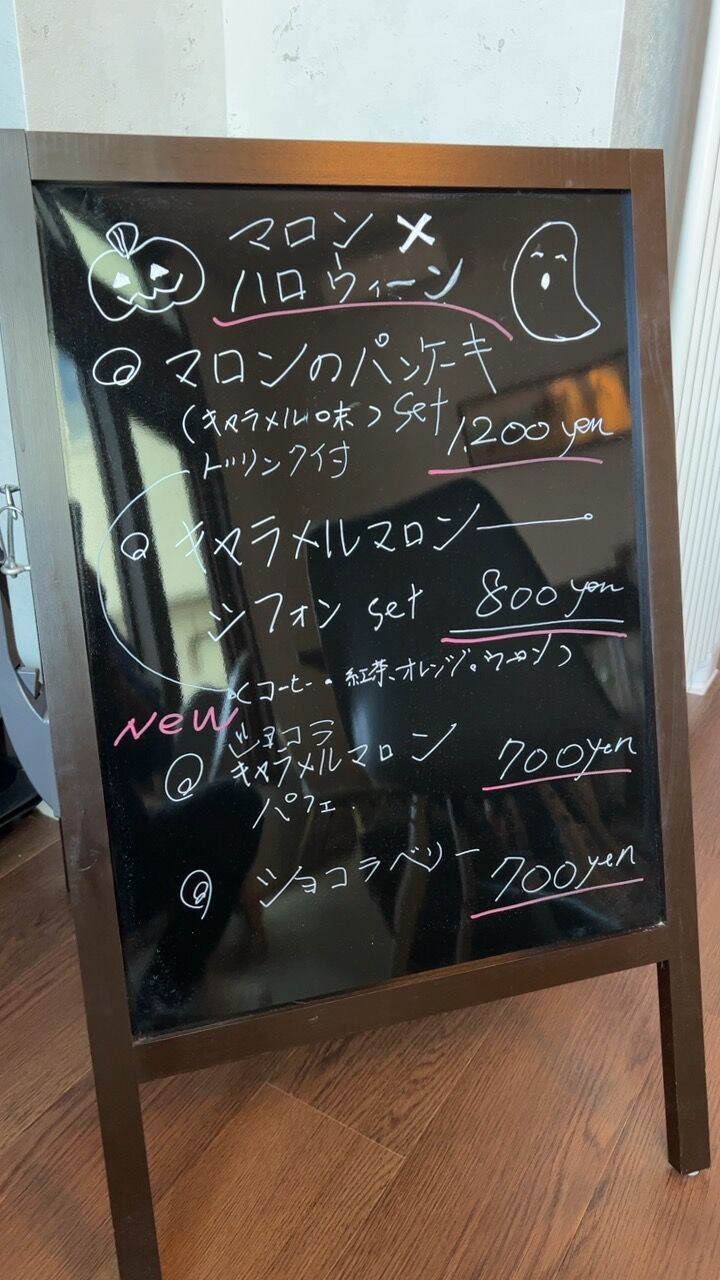 マロン ×
ハロウィーン
マロンのパンケーキ
(キャラメル味) set
1,200 yen
ドリンク付
キャラメルマロン
シフォン set 800 yen
(コーヒー・紅茶、オレンジ。ウーロン)
NEW
ショコラ
キャラメルマロン 700 yen
パフェ.
ショコラベリー 700 yen